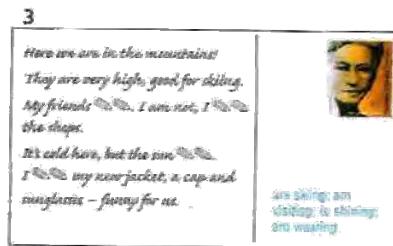 3
Here we are in the mountains!
They are very high, good for skiing.
My friends . I am not, I
the shops.
It's cold here, but the sun .
I my new jacket, a cap and
sunglasses – funny for us.
are skiing; am
visiting; is shining;
am wearing